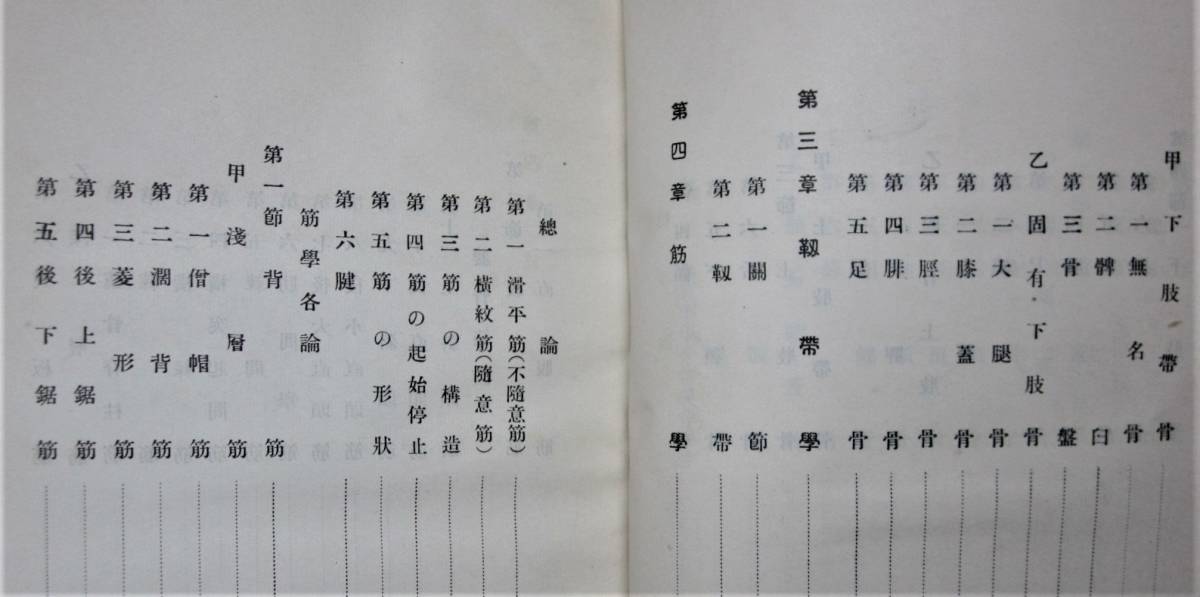 甲下肢帶骨
第一無名骨
第二髀臼
第三骨盤
乙固有下肢骨
第一大腿骨
第二膝蓋骨
第三脛骨
第四腓骨
第五足骨
第三章靱帶學
第一關節
第二靱帶
第四章筋學
總論
第一滑平筋(不隨意筋)
第二橫紋筋(隨意筋)
第三筋の構造
第四筋の起始停止
第五筋の形狀
第六腱
筋學各論
第一節背筋
甲淺層筋
第一僧帽筋
第二濶背筋
第三菱形筋
第四後上鋸筋
第五後下鋸筋